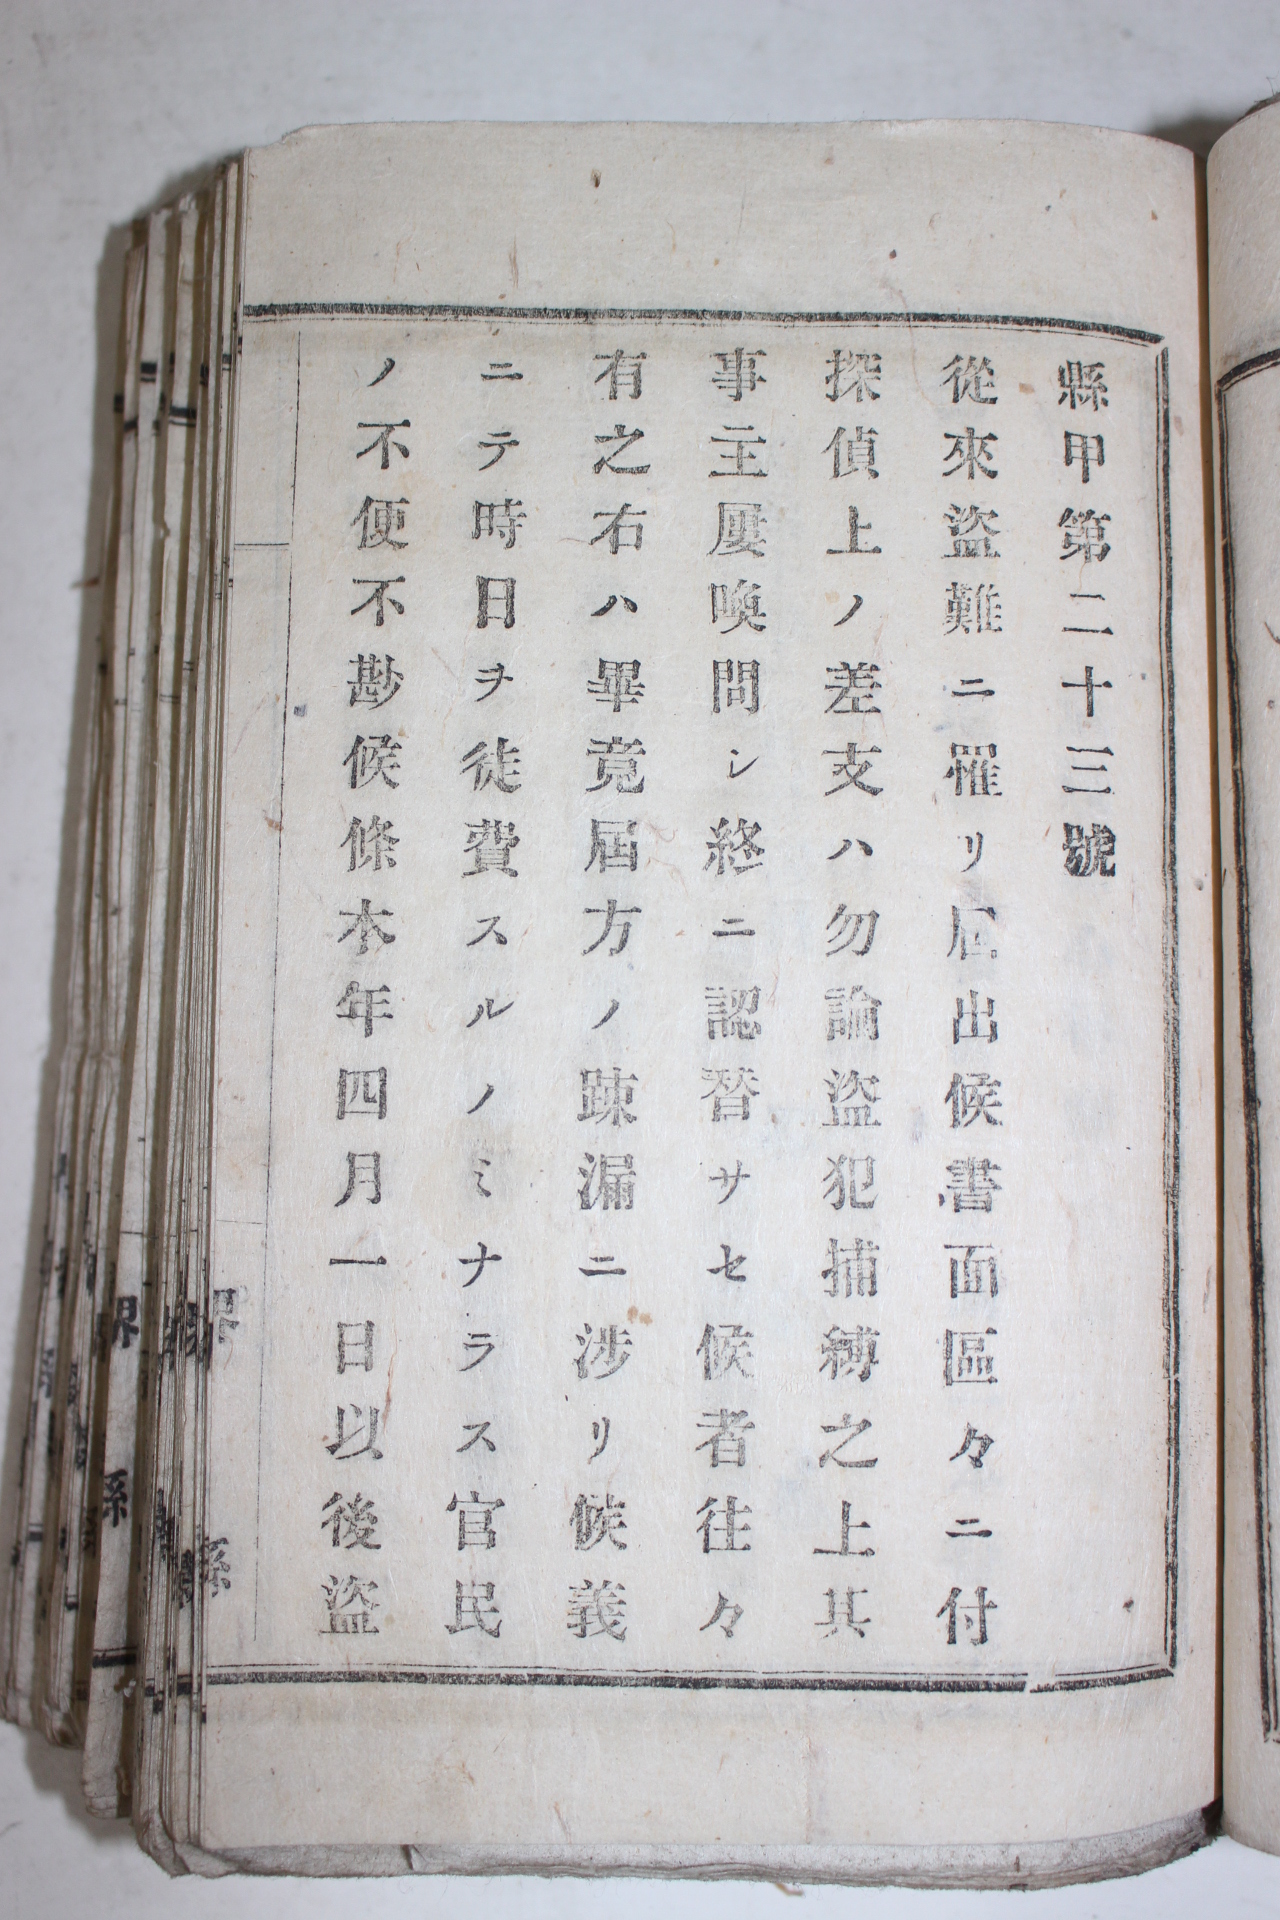 縣甲第二十三號
從來盜難ニ罹リ届出候書面區々ニ付
探偵上ノ差支ハ勿論盜犯捕縛之上其
事主屢喚問シ終ニ認替サセ候者往々
有之右ハ畢竟屆方ノ踈漏ニ涉リ候義
ニテ時日ヲ徒費スルノミナラス官民
ノ不便不尠候條本年四月一日以後盜